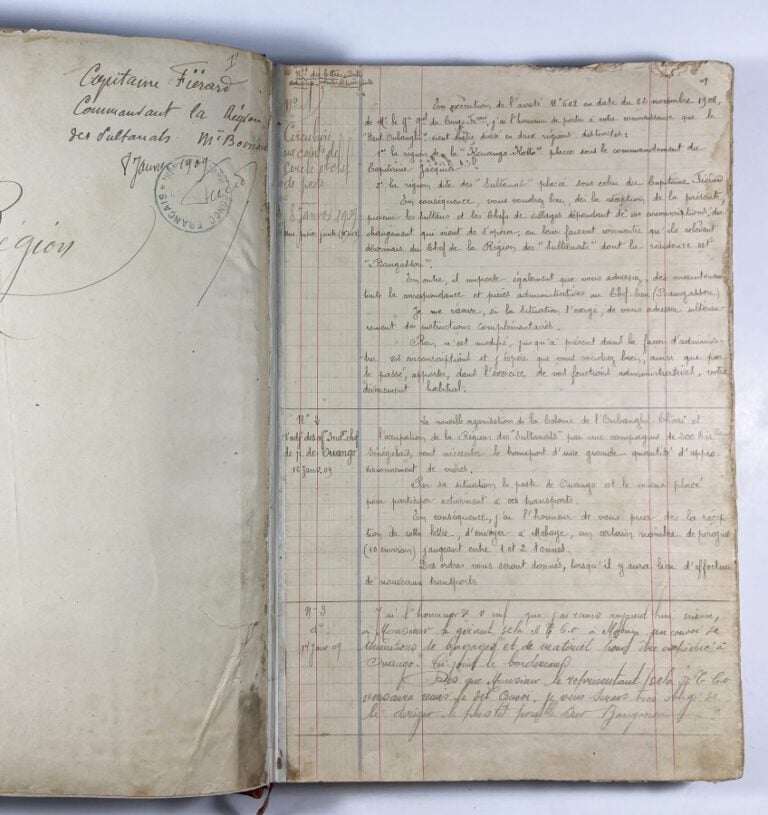 Capitaine Fiérard
Commandant la Région
des Sultanats. Mt
8 Janvier 1909
CONGO FRANÇAIS
Région
1
Nos des lettres Date
No 1
Circulaire
aux
Cercle et chefs
de poste
8 Janvier 1909
Une pièce jointe
En exécution de l'arrêté No 608 en date du 22 novembre 1908,
de Mr le Gr Gal du Congo Fçais, j'ai l'honneur de porter à votre connaissance que le
"Haut Oubanghi" vient d'être divisé en deux régions distinctes :
1o la région de la "Kouango-Kotto" placée sous le commandement du
Capitaine Jacquin
2o la région dite des "Sultanats" placée sous celui du Capitaine Fiérard
En conséquence, vous voudrez bien, dès la réception de la présente,
prévenir les sultans et les Chefs de villages dépendant de vos circonscriptions, du
changement qui vient de s'opérer, en leur faisant connaître qu'ils relèvent
désormais du Chef de la Région des "Sultanats" dont la résidence est
"Bangassou".
En outre, il importe également que vous adressiez, dès maintenant
toute la correspondance et pièces administratives au Chef lieu (Bangassou)
Je me réserve, si la situation l'exige, de vous adresser ultérieu-
rement des instructions complémentaires.
Rien n'est modifié, jusqu'à présent dans la façon d'adminis-
trer vos circonscriptions et j'espère que vous voudrez bien, ainsi que par
le passé, apporter, dans l'exercice de vos fonctions administratives, votre
dévouement habituel.
No 2
chef
de p. de Ouango
12 Janv. 09
La nouvelle organisation de la Colonie de l'Oubanghi-Chari et
l'occupation de la Région des "Sultanats" par une compagnie de 200
Sénégalais, vont nécessiter le transport d'une grande quantité d'appro-
visionnement de vivres.
Par sa situation le poste de Ouango est le mieux placé
pour participer activement à ces transports.
En conséquence, j'ai l'honneur de vous prier, dès la récep-
tion de cette lettre, d'envoyer à Mobaye, un certain nombre de pirogues
(10 environ) jaugeant entre 1 et 2 tonnes.
Des ordres vous seront donnés, lorsqu'il y aura lieu d'effectuer
de nouveaux transports
No 3
do
14 Janv 09
J'ai l'honneur de v inf. que j'ai remis aujourd'hui même,
à Monsieur le gérant de la à Mobaye, un convoi de
de bagages et de matériel pour être expédié à
Ouango. Ci joint le bordereau
Dès que Monsieur le représentant de la
vous aura remis le dit convoi, je vous serais très obligé de
le diriger le plus tôt possible sur Bangassou